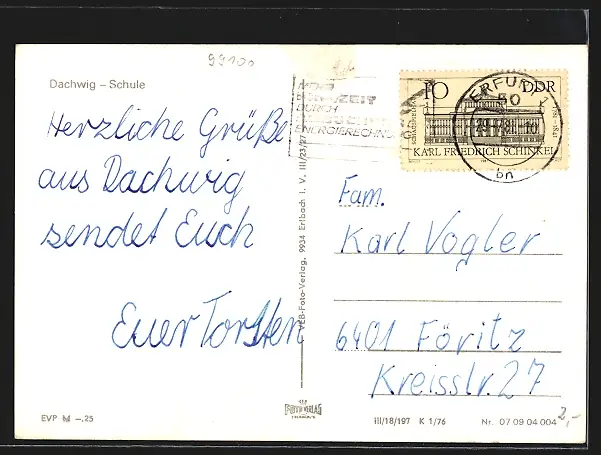 99100
Dachwig – Schule
Herzliche Grüße
aus Dachwig
sendet Euch
Euer Torsten
EVP M –,25
VEB-Foto-Verlag, 9934 Erlbach I. V. III/23/27
MEHR
FREIZEIT
DURCH
ENERGIERECHNUNG
10 DDR
SCHAUSPIELHAUS
1781-1841
KARL FRIEDRICH SCHINKEL
ERFURT 1
50
bn
Fam.
Karl Vogler
6401 Föritz
Kreisstr. 27
FOTO-VERLAG
III/18/197 K 1/76 Nr. 07 09 04 004
2,-